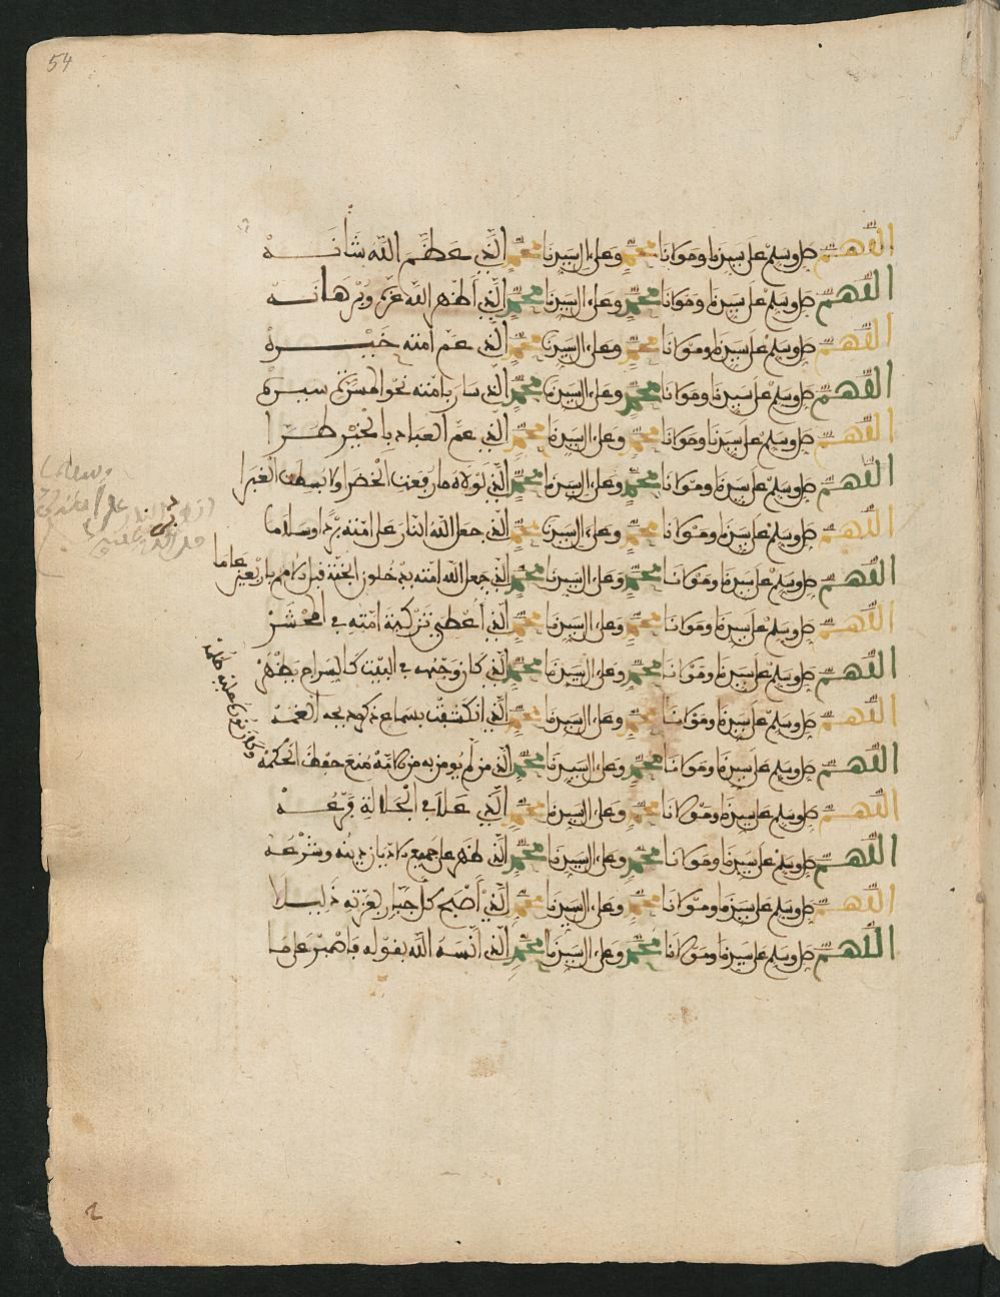 54
اللهم صل وسلم على سيدنا ومولانا محمد وعلى ءال سيدنا محمد الذي عظم الله شانه
اللهم صل وسلم على سيدنا ومولانا محمد وعلى ءال سيدنا محمد الذي أظهر الله عزه وبرهانه
اللهم صل وسلم على سيدنا ومولانا محمد وعلى ءال سيدنا محمد الذي عم أمته خيره
اللهم صل وسلم على سيدنا ومولانا محمد وعلى ءال سيدنا محمد الذي سار بامته نحو سيره
اللهم صل وسلم على سيدنا ومولانا محمد وعلى ءال سيدنا محمد الذي عم العباد بالخير طرا
اللهم صل وسلم على سيدنا ومولانا محمد وعلى ءال سيدنا محمد الذي لولاه ما رفعت الخضرا ولا بسطت الغبرا
اللهم صل وسلم على سيدنا ومولانا محمد وعلى ءال سيدنا محمد الذي جعل الله النار على امته بردا وسلاما
اللهم صل وسلم على سيدنا ومولانا محمد وعلى ءال سيدنا محمد الذي جعل الله امته يدخلون الجنة قبل الامم باربعين عاما
اللهم صل وسلم على سيدنا ومولانا محمد وعلى ءال سيدنا محمد الذي أعطي تزكية امته في المحشر
اللهم صل وسلم على سيدنا ومولانا محمد وعلى ءال سيدنا محمد الذي كان وجهه في البيت كالسراج يظهر
اللهم صل وسلم على سيدنا ومولانا محمد وعلى ءال سيدنا محمد الذي انكشفت بسماع ذكر الغمة
اللهم صل وسلم على سيدنا ومولانا محمد وعلى ءال سيدنا محمد الذي من لم يومن به من الامة منع حفظ الحكمة
اللهم صل وسلم على سيدنا ومولانا محمد وعلى ءال سيدنا محمد الذي علا في الجلالة فرعه
اللهم صل وسلم على سيدنا ومولانا محمد وعلى ءال سيدنا محمد الذي ظهر على جميع الاديان دينه وشرعه
اللهم صل وسلم على سيدنا ومولانا محمد وعلى ءال سيدنا محمد الذي أصبح كل جبار بعزته ذليلا
اللهم صل وسلم على سيدنا ومولانا محمد وعلى ءال سيدنا محمد الذي انسه الله بقوله فاصبر على ما